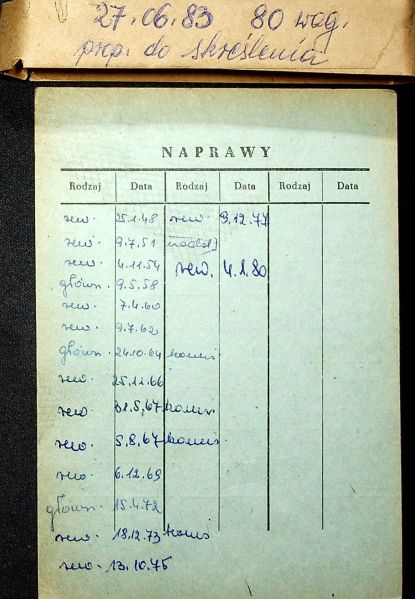 27.06.83 80 wag.
prop. do skreślenia
NAPRAWY
Rodzaj Data Rodzaj Data Rodzaj Data
rew. 25.1.48 rew. 9.12.77
rew. 9.7.51
rew. 4.11.54 rew. 4.1.80
główn. 9.5.58
rew. 7.4.60
rew. 9.7.62
główn. 24.10.64 komis
rew. 25.11.66
rew. 31.5.67 komis
rew. 5.8.67 komis
rew. 6.12.69
główn. 15.4.72
rew. 18.12.73 komis
rew. 13.10.75